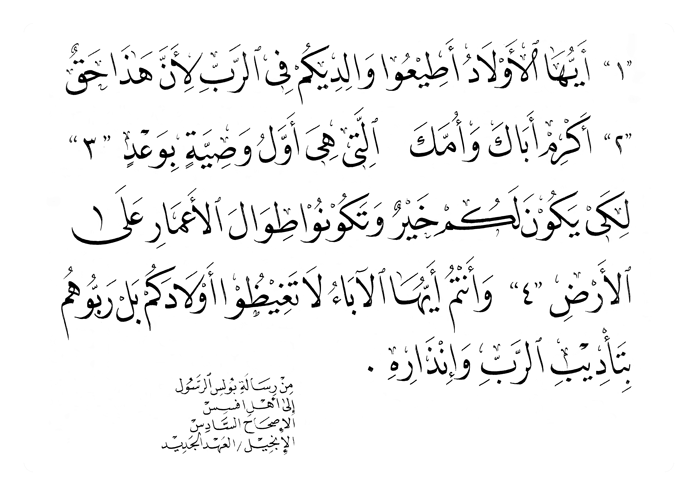 "١" أَيُّهَا ٱلْأَوْلَادُ أَطِيعُوا وَالِدِيكُمْ فِى ٱلرَّبِّ لِأَنَّ هَذَا حَقٌّ
"٢" أَكْرِمْ أَبَاكَ وَأُمَّكَ ٱلَّتِى هِىَ أَوَّلُ وَصِيَّةٍ بِوَعْدٍ "٣"
لِكَىْ يَكُونَ لَكُمْ خَيْرٌ وَتَكُونُوا طِوَالَ ٱلأَعْمَارِ عَلَى
ٱلأَرْضِ "٤" وَأَنْتُمْ أَيُّهَا ٱلآبَاءُ لَا تَغِيظُوا أَوْلَادَكُمْ بَلْ رَبُّوهُمْ
بِتَأْدِيبِ ٱلرَّبِّ وَإِنْذَارِهِ .
مِنْ رِسَالَةِ بُولِس ٱلرَّسُول
إِلَى أَهْلِ افسِسْ
الإصحَاح السَّادِسْ
الإِنْجِيل / العَهْد الجَدِيد